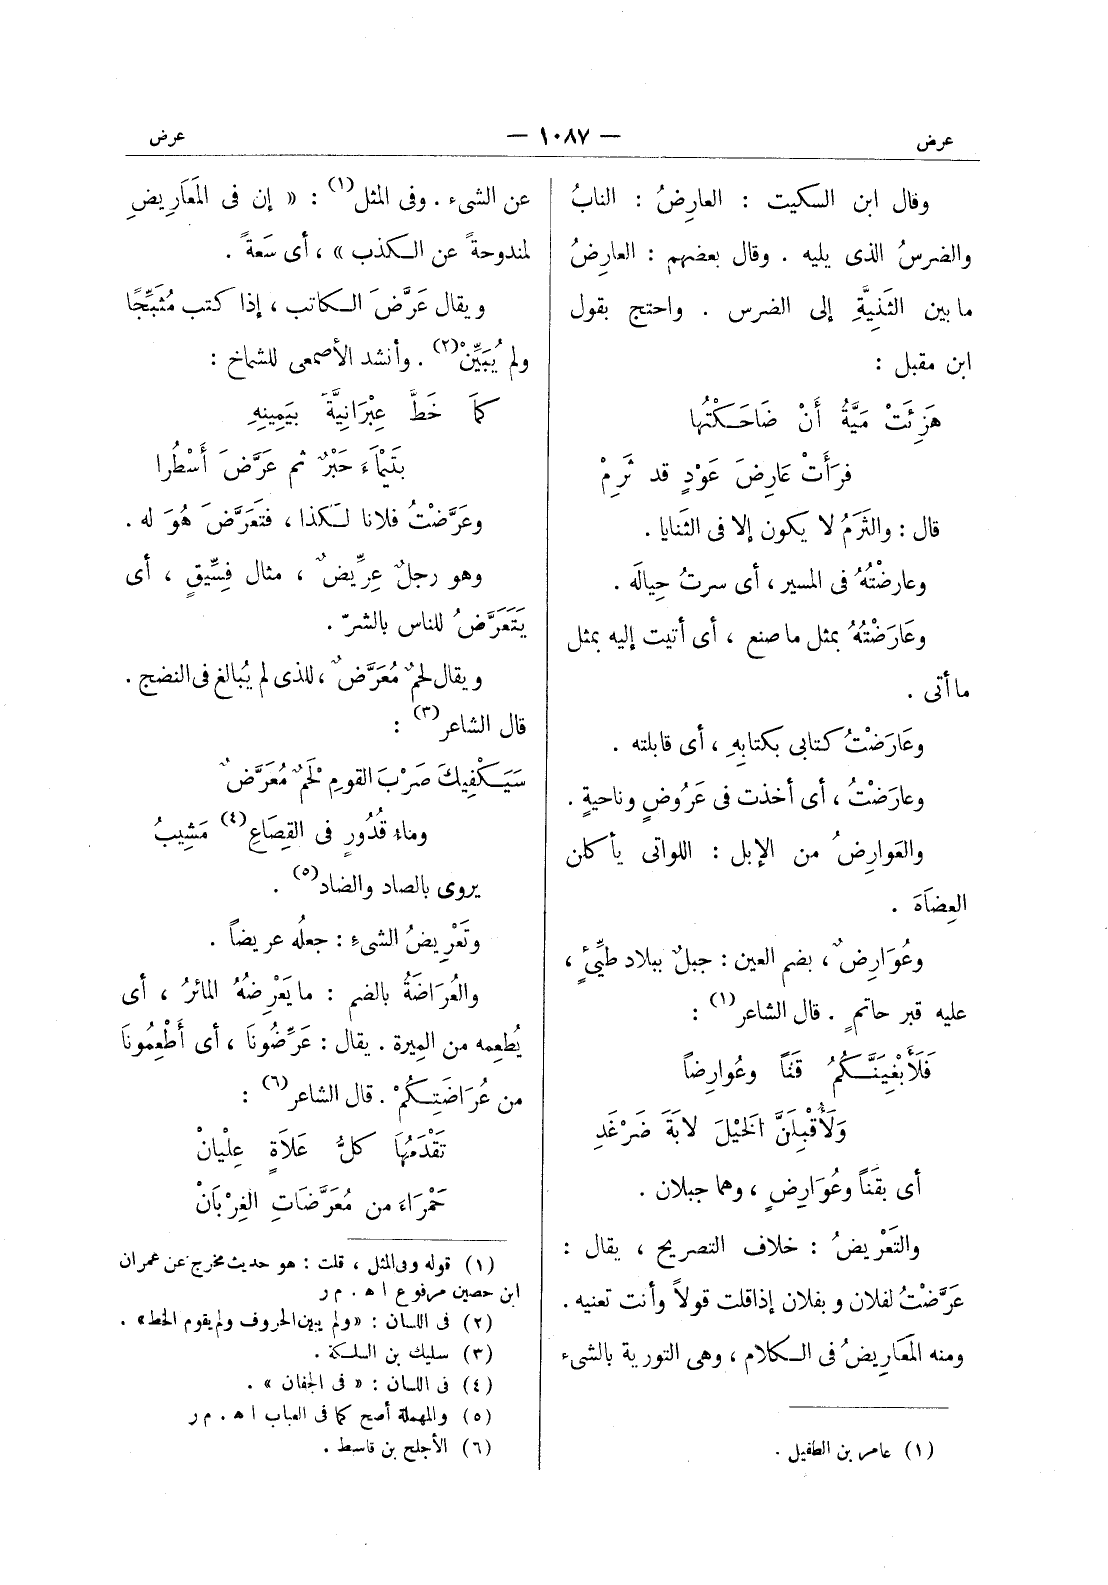 عرض
— ١٠٨٧ —
عرض
وقال ابن السكيت : العارِضُ : النابُ
والضرسُ الذى يليه . وقال بعضهم : العارِضُ
ما بين الثَنِيَّةِ إلى الضرس . واحتج بقول
ابن مقبل :
هَزِئَتْ مَيَّةُ أَنْ ضَاحَكْتُها
فرَأَتْ عَارِضَ عَوْدٍ قد ثَرِمْ
قال : والثَرَمُ لا يكون إلا فى الثَنايا .
وعارضْتُهُ فى المسير ، أى سرتُ حِيالَه .
وعَارَضْتُهُ بمثل ما صنع ، أى أتيت إليه بمثل
ما أتى .
وعَارَضْتُ كتابى بكتابِهِ ، أى قابلته .
وعارَضْتُ ، أى أخذت فى عَرُوضٍ وناحيةٍ .
والعَوارِضُ من الإبل : اللواتى يأكلن
العِضَاهَ .
وعُوَارِضٌ ، بضم العين : جبلٌ ببلاد طيِّئٍ ،
عليه قبر حاتمٍ . قال الشاعر (١) :
فَلَأَبْغِيَنَّكُمُ قَنًا وعُوارِضاً
وَلَأُقْبِلَنَّ الخَيْلَ لابَةَ ضَرْغَدِ
أى بقَناً وعُوَارِضٍ ، وهما جبلان .
والتَعْرِيضُ : خلاف التصريح ، يقال :
عَرَّضْتُ لفلان وبفلان إذا قلت قولاً وأنت تعنيه .
ومنه المَعَارِيضُ فى الكلام ، وهى التورية بالشىء
(١) عامر بن الطفيل .
عن الشىء . وفى المثل (١) : « إن فى المَعَارِيضِ
لمندوحةً عن الكذب » ، أى سَعَةً .
ويقال عَرَّضَ الكاتب ، إذا كتب مُثَبِّجًا
ولم يُبَيِّنْ (٢) . وأنشد الأصمعى للشماخ :
كَمَا خَطَّ عِبْرَانِيَّةً بيَمِينِهِ
بتَيْمَاءَ حَبْرٌ ثم عَرَّضَ أَسْطُرا
وعَرَّضْتُ فلانا لكذا ، فتَعَرَّضَ هُوَ له .
وهو رجلٌ عِرِّيضٌ ، مثال فِسِّيقٍ ، أى
يَتَعَرَّضُ للناس بالشرّ .
ويقال لحمٌ مُعَرَّضٌ ، للذى لم يُبالغ فى النضج .
قال الشاعر (٣) :
سَيَكْفِيكَ صَرْبَ القومِ لَحْمٌ مُعَرَّضٌ
وماء قُدُورٍ فى القِصَاعِ (٤) مَشِيبُ
يروى بالصاد والضاد (٥) .
وتَعْرِيضُ الشىءِ : جعلُه عريضاً .
والعُرَاضَةُ بالضم : ما يَعْرِضُهُ المائرُ ، أى
يُطعِمه من المِيرة . يقال : عَرِّضُونَا ، أى أَطْعِمُونَا
من عُرَاضَتِكُمْ . قال الشاعر (٦) :
تَقْدَمُهَا كلُّ عَلاَةٍ عِلْيانْ
حَمْرَاءَ من مُعَرَّضَاتِ الغِرْبَانْ
(١) قوله وفى المثل ، قلت : هو حديث مخرج عن عمران
ابن حصين مرفوع ا هـ . م ر
(٢) فى اللسان : « ولم يبين الحروف ولم يقوم الخط » .
(٣) سليك بن السلكة .
(٤) فى اللسان : « فى الجفان » .
(٥) والمهملة أصح كما فى العباب ا هـ . م ر
(٦) الأجلح بن قاسط .